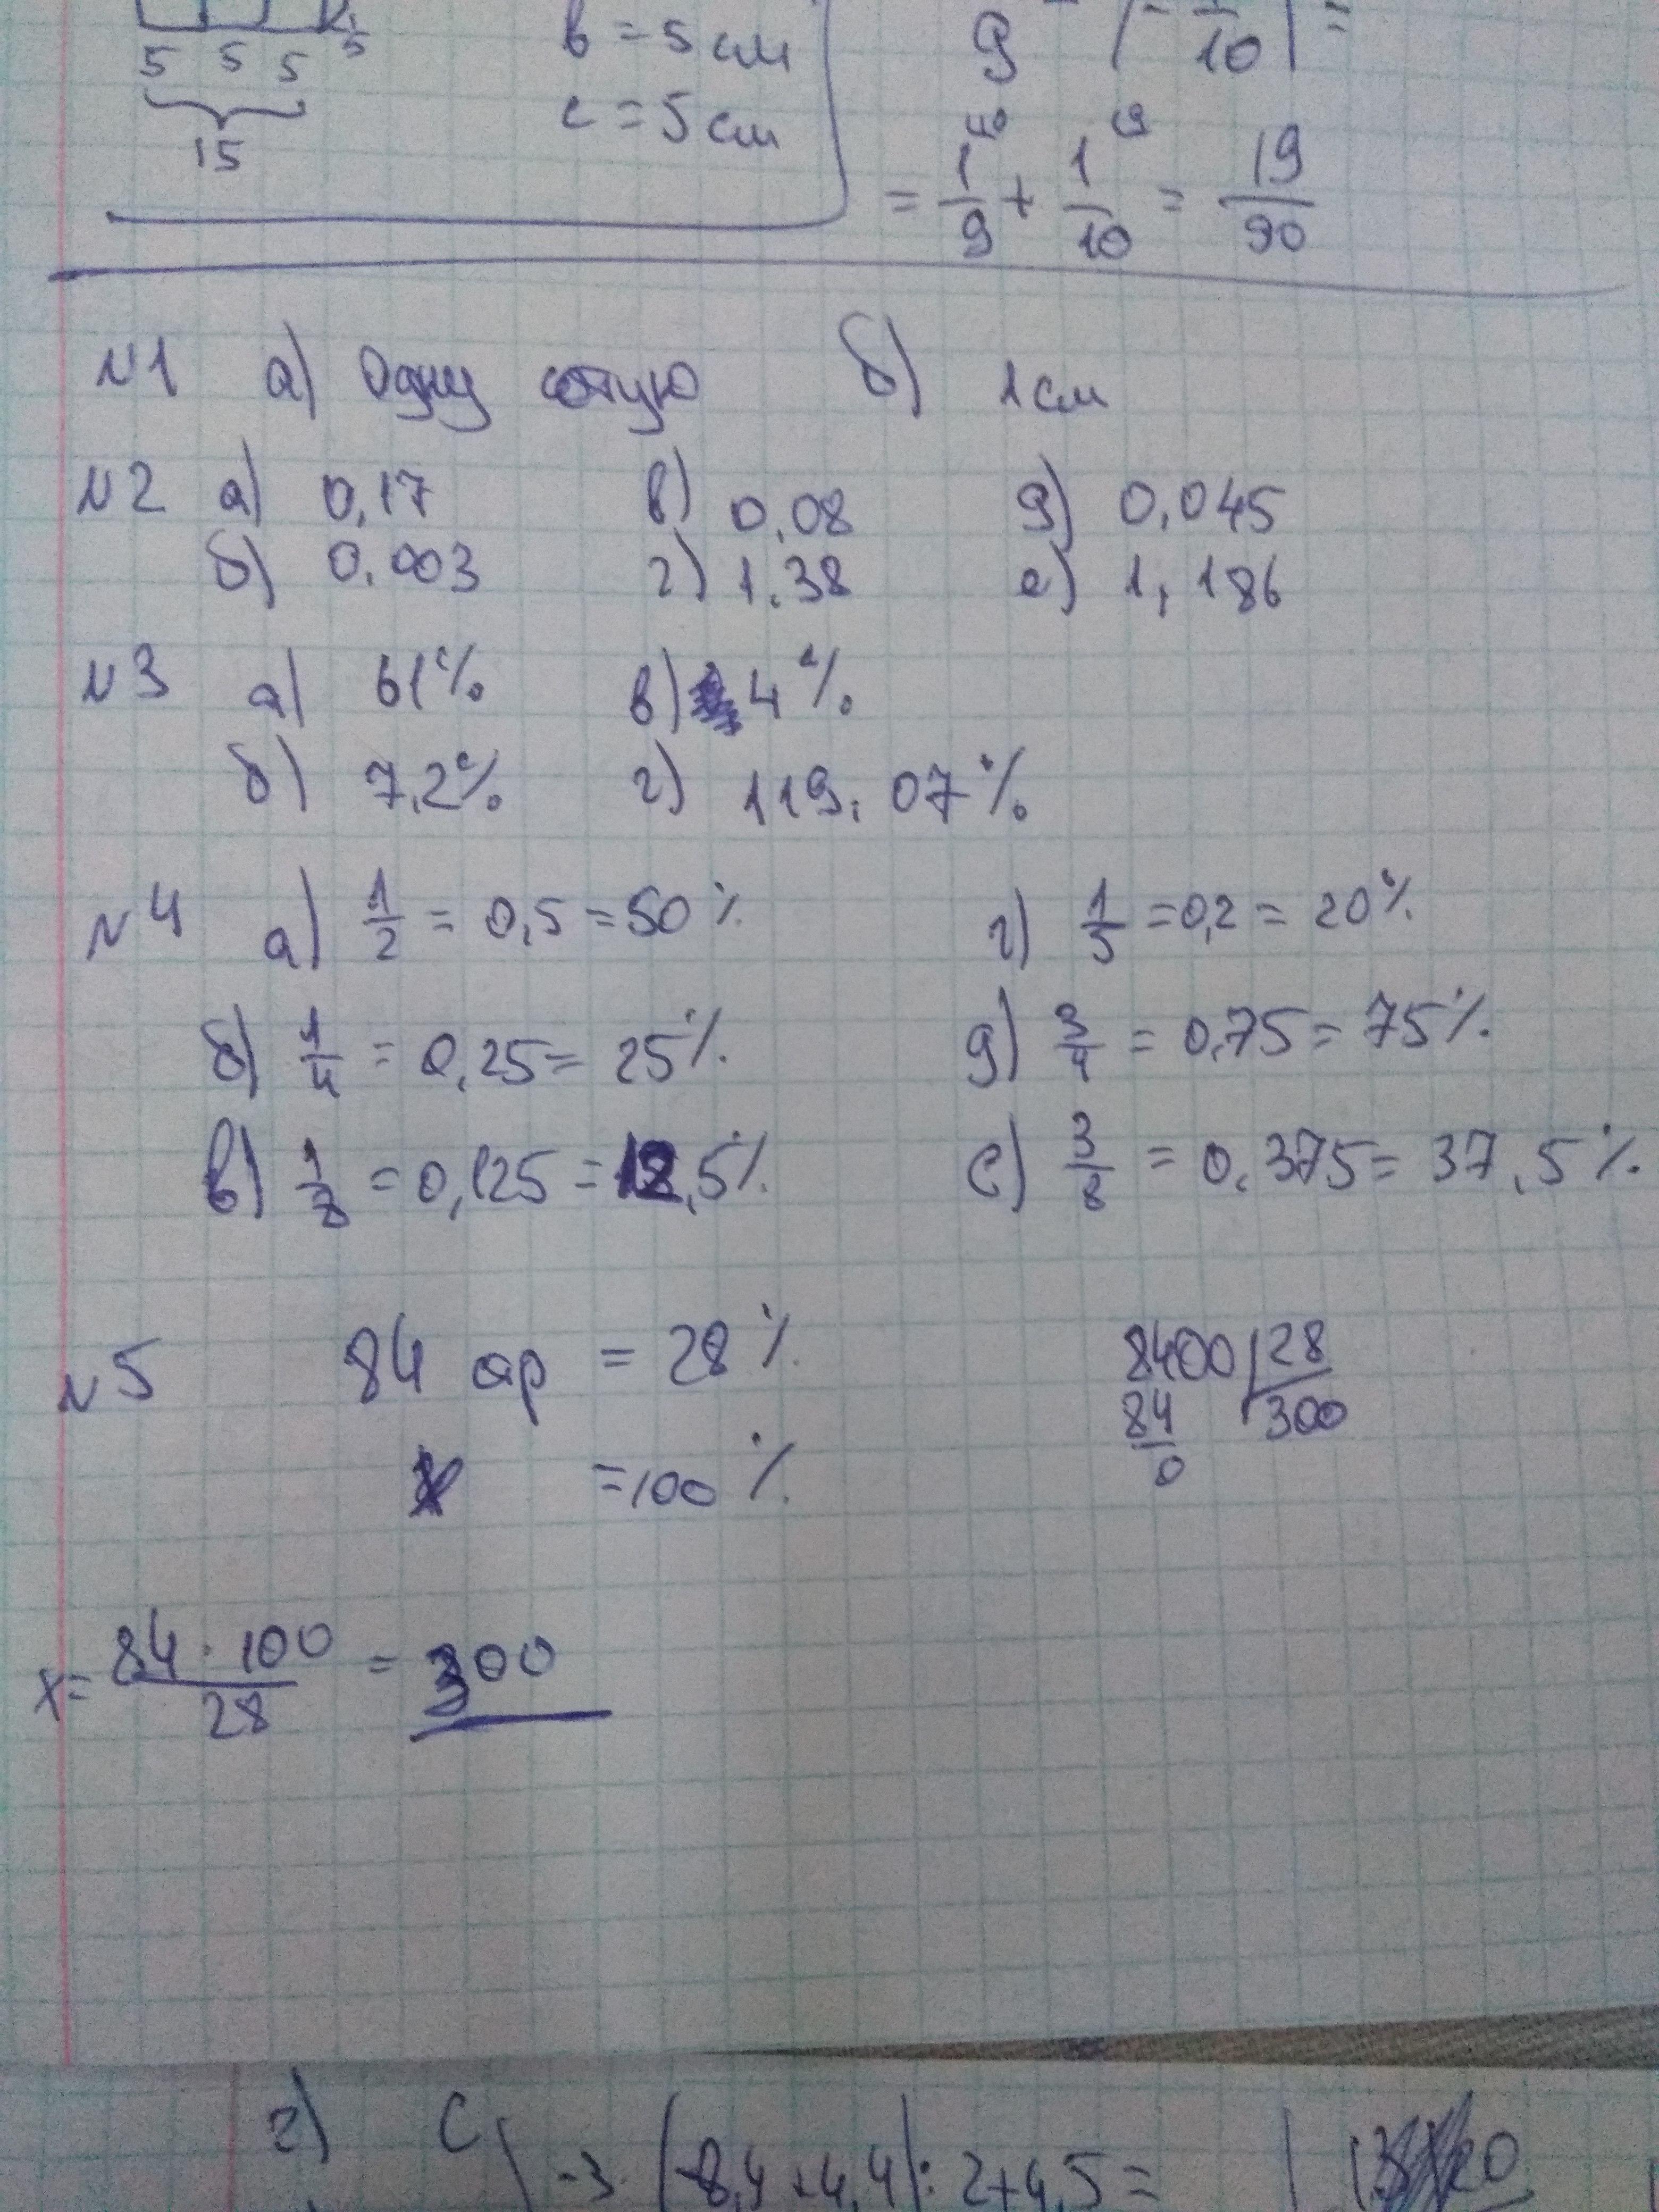 5 5 5 5
15
b = 5 см
c = 5 см
= 1/9 + 1/10 = 19/90
N1 а) Одну сотую б) 1 см
N2 а) 0,17 в) 0,08 д) 0,045
б) 0,003 г) 1,38 е) 1,186
N3 а) 61% в) 4%
б) 7,2% г) 119,07%
N4 а) 1/2 = 0,5 = 50% г) 1/5 = 0,2 = 20%
б) 1/4 = 0,25 = 25% д) 3/4 = 0,75 = 75%
в) 1/8 = 0,125 = 12,5% е) 3/8 = 0,375 = 37,5%
N5 84 ар = 28% 8400 | 28
84 300
0
x = 100%
x = 84 · 100 / 28 = 300
г) -3 (-8,4+4,4) : 2+4,5 =